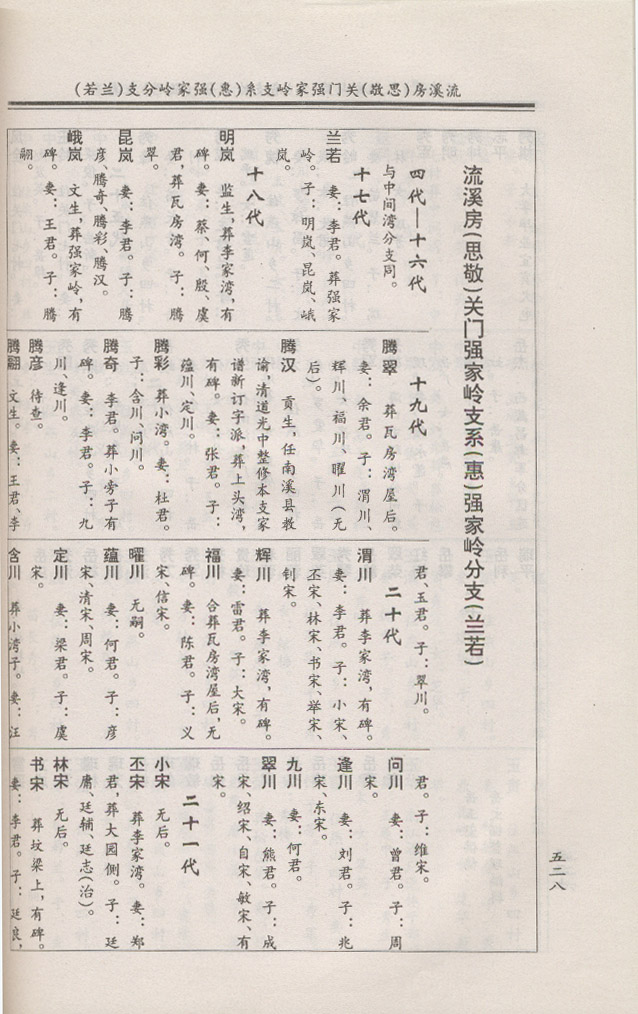 流溪房(思敬)关门强家岭支系(惠)强家岭分支(兰若)
流溪房(思敬)关门强家岭支系(惠)强家岭分支(兰若)
四代—十六代
与中间湾分支同。
十七代
兰若 妻：李君。葬强家
岭。子：明岚、昆岚、峨
岚。
十八代
明岚 监生，葬李家湾，有
碑。妻：蔡、何、殷、虞
君，葬瓦房湾。子：腾
翠。
昆岚 妻：李君。子：腾
彦、腾奇、腾彩、腾汉。
峨岚 文生，葬强家岭，有
碑。妻：王君。子：腾
翮。
十九代
腾翠 葬瓦房湾屋后。
妻：余君。子：渭川、
辉川、福川、曜川（无
后）。
腾汉 贡生，任南溪县教
谕，清道光中整修本支家
谱新订字派，葬上头湾，
有碑。妻：张君。子：
蕴川、定川。
腾彩 葬小湾。妻：杜君。
子：含川、问川。
腾奇 李君。葬小旁子有
碑。妻：李君。子：九
川、逢川。
腾彦 待查。
腾翮 文生。妻：王君、李
君、玉君。子：翠川。
二十代
渭川 葬李家湾，有碑。
妻：李君。子：小宋、
丕宋、林宋、书宋、举宋、
钊宋。
辉川 葬李家湾，有碑。
妻：雷君。子：大宋。
福川 合葬瓦房湾屋后，无
碑。妻：陈君。子：义
宋、信宋。
曜川 无嗣。
蕴川 妻：何君。子：彦
宋、清宋、周宋。
定川 妻：梁君。子：虞
宋。
含川 葬小湾子。妻：汪
君。子：维宋。
问川 妻：曾君。子：周
宋。
逢川 妻：刘君。子：兆
宋、东宋。
九川 妻：何君。
翠川 妻：熊君。子：成
宋、绍宋、自宋、敏宋、有
宋。
二十一代
小宋 无后。
丕宋 葬李家湾。妻：郑
君，葬大园侧。子：廷
庸、廷辅、廷志(治)。
林宋 无后。
书宋 葬坟梁上，有碑。
妻：李君。子：廷良，
五二八